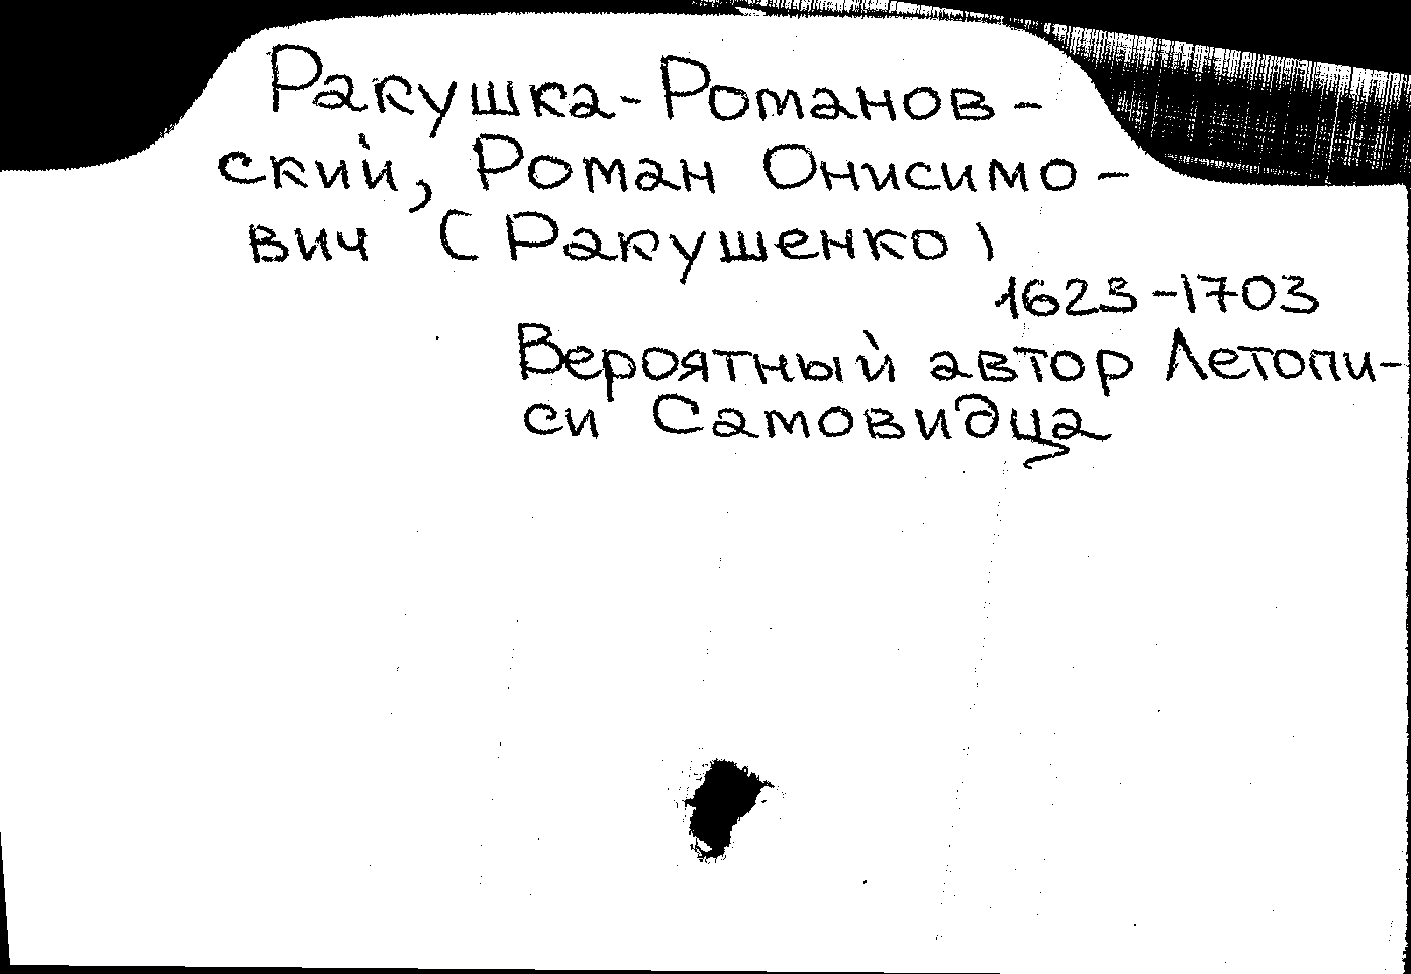 Ракушка-Романов-
ский, Роман Онисимо-
вич (Ракушенко)
1623-1703
Вероятный автор Летопи-
си Самовидца